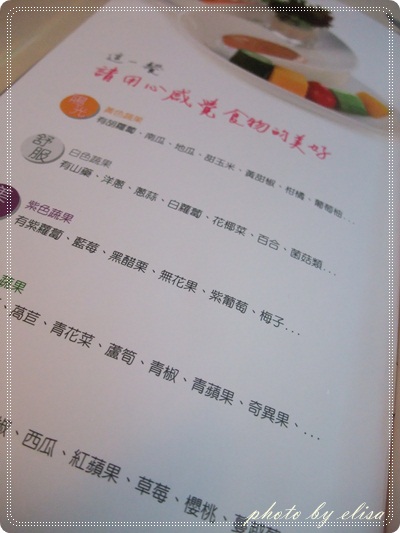 這一餐
請用心感覺食物的美好
陽光
黃色蔬果
有胡蘿蔔、南瓜、地瓜、甜玉米、黃甜椒、柑橘、葡萄柚...
舒服
白色蔬果
有山藥、洋蔥、蔥蒜、白蘿蔔、花椰菜、百合、菌菇類...
紫色蔬果
有紫蘿蔔、藍莓、黑醋栗、無花果、紫葡萄、梅子...
蔬果
、萵苣、青花菜、蘆筍、青椒、青蘋果、奇異果、...
椒、西瓜、紅蘋果、草莓、櫻桃、蔓越莓
photo by elisa